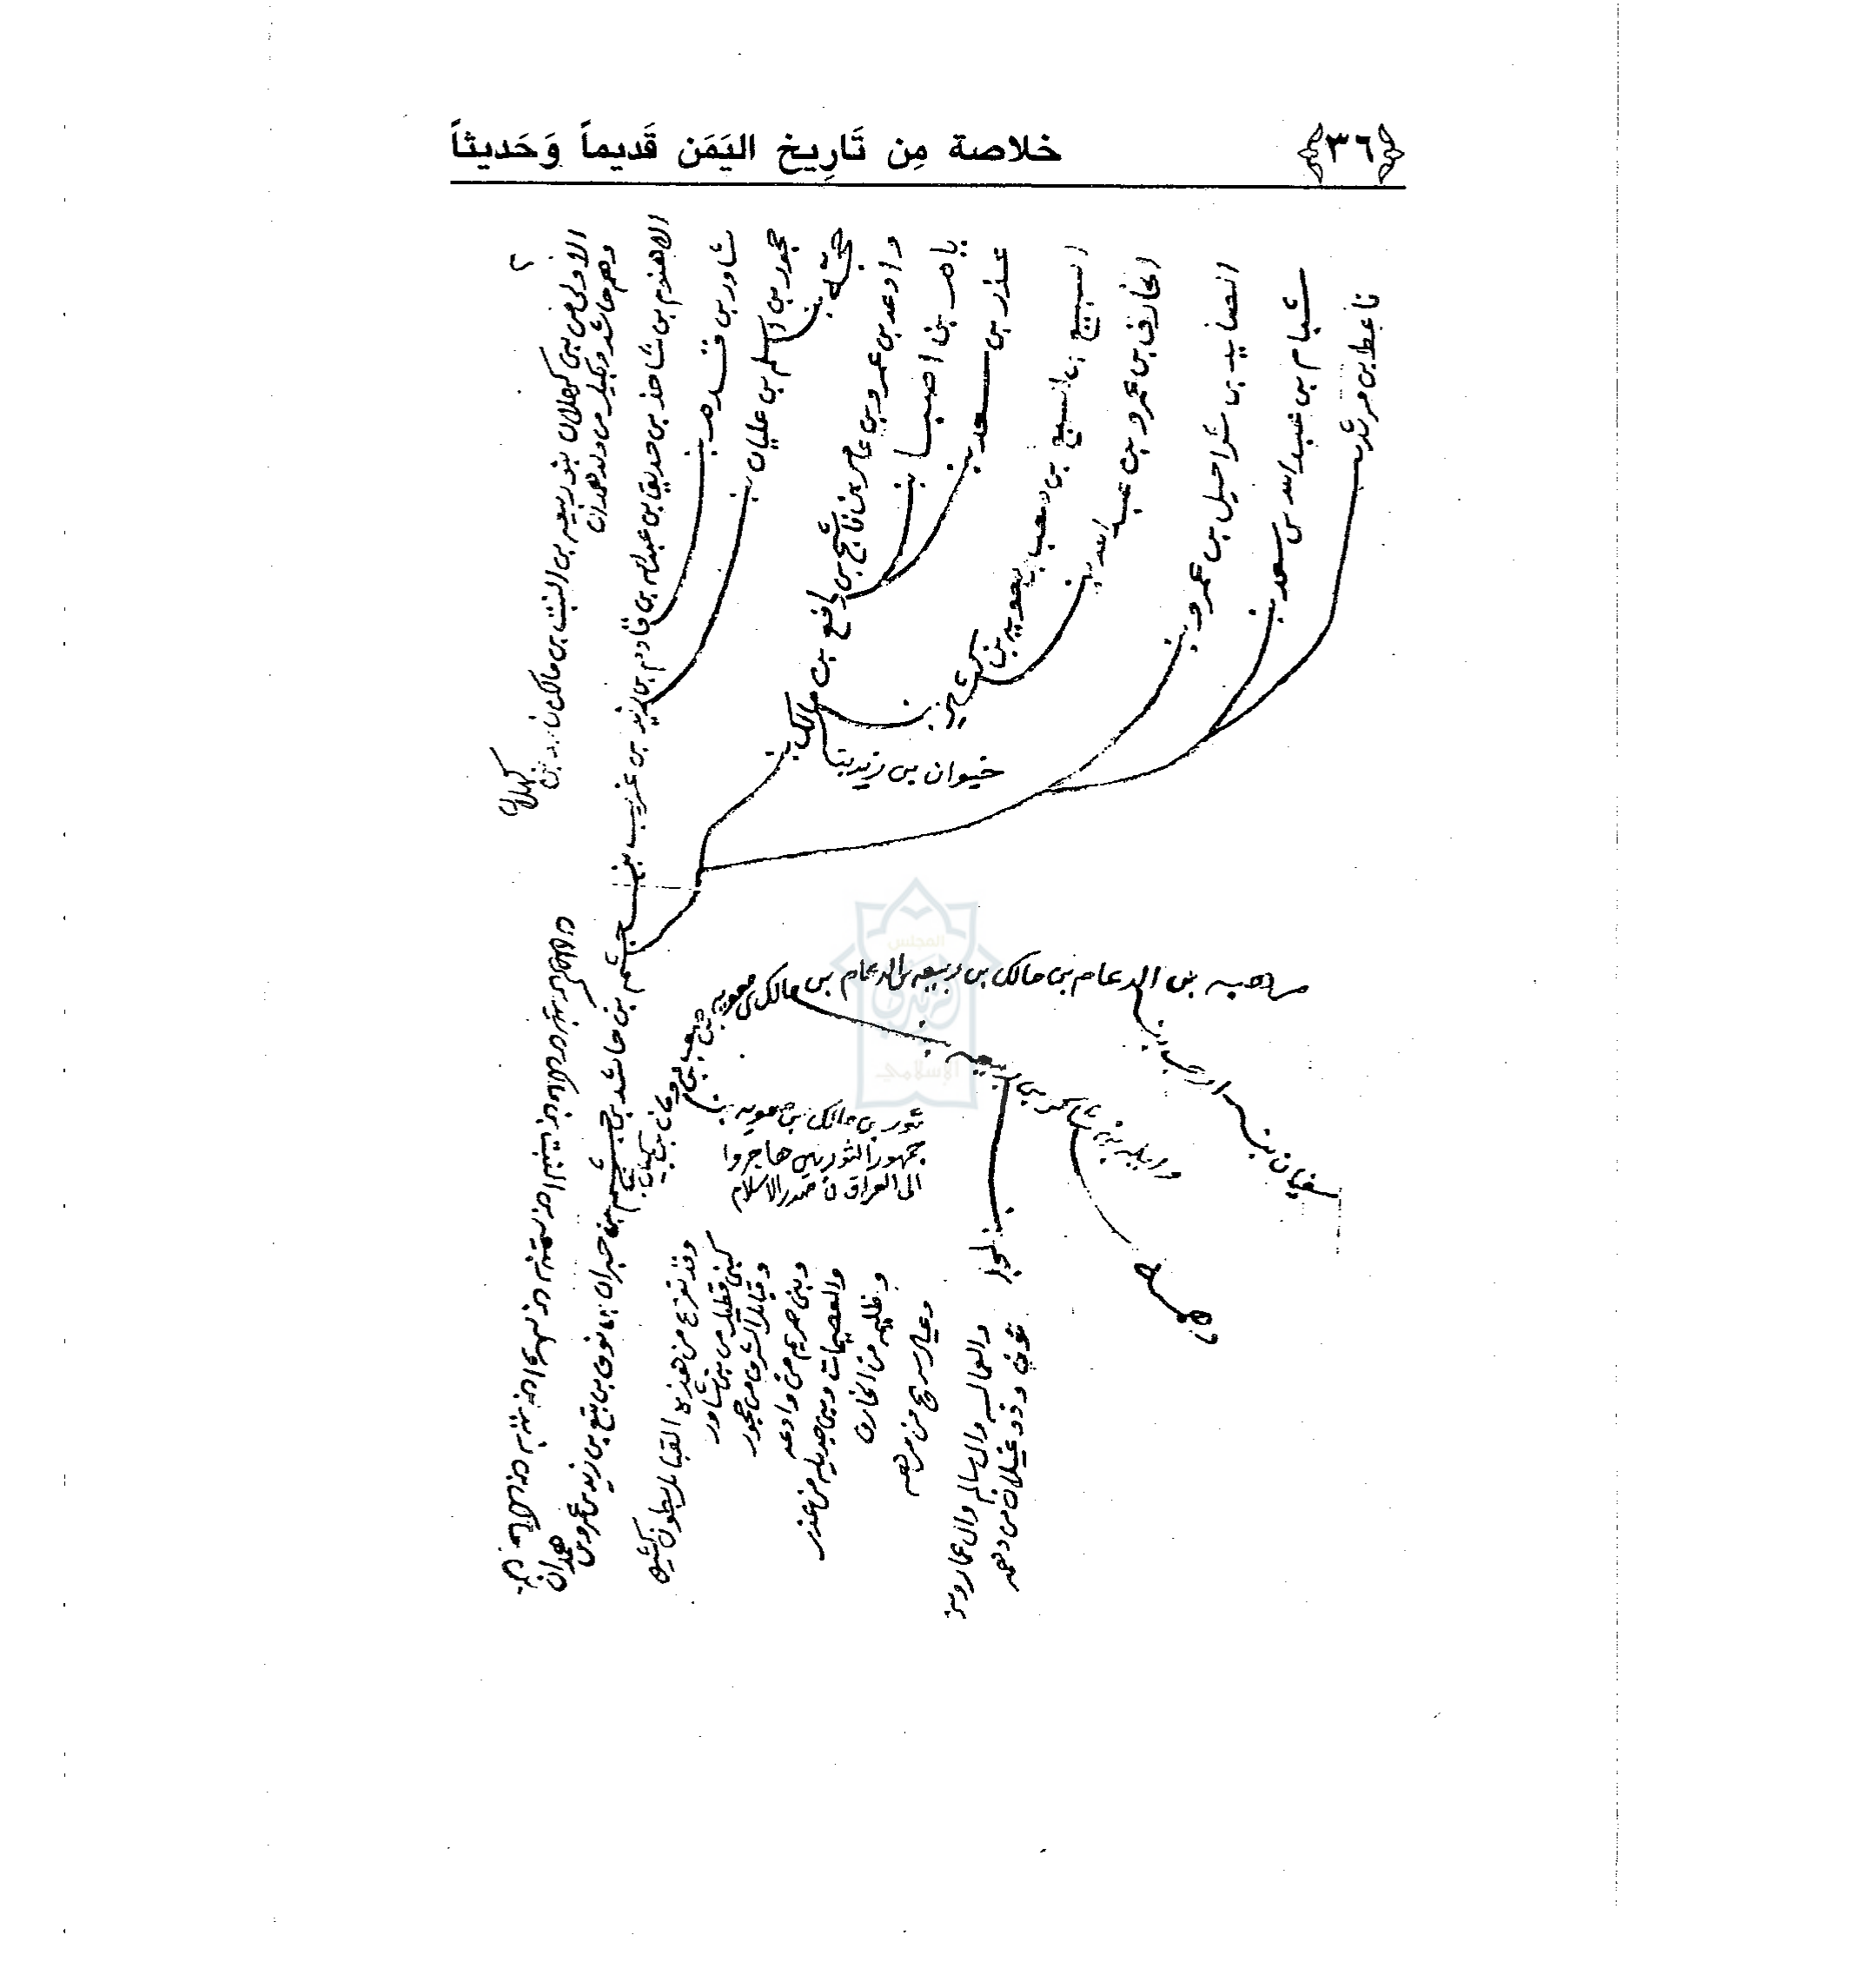 ﴿٣٦﴾
خلاصة مِن تَارِيخ اليَمَن قَديماً وَحَديثاً
٢
الاولى من بني كهلان بنو ربيعه بن النبت بن مالك بن زيد بن كهلان
وهم حاشد وبكيل من ولد همدان
الاهنوم بن شاحذ بن حديق بن عبدالله بن قادم بن زيد بن عريب بن جشم بن حاشد بن جشم بن حبران بن نوف بن بتع بن زيد بن عمرو بن همدان
شاور بن قدم بن
حجور بن اسلم بن عليان بن
حجة بن
وادعه بن عمرو بن عامر بن ناشج بن دافع بن مالك بن
يام بن اصبا بن
عذر بن سعد بن
السبيع بن السبع بن صعب بن معويه بن كثير بن
الخارف بن عمرو بن عبدالله بن
خيوان بن زيد بن
الصايد بن شراحيل بن عمرو بن
شبام بن عبدالله بن سعد بن
ناعط بن مرثد
مرهبه بن الدعام بن مالك بن ربيعه بن الدعام بن مالك بن معويه بن صعب بن دومان بن بكيل بن
سفيان بن ارحب بن
وايله بن شاكر بن ربيعه بن
دهمه
ثور بن مالك بن معويه بن
جمهور الثوريين هاجروا
الى العراق في صدر الاسلام
وقد تفرع من هذه القبايل بطون كثيره
كبني قطيل من بني شاور
وقبايل الشرف من حجور
وبني صريم من وادعه
والعصيمات وبني جديله من عذر
وظليمه من الخارف
وعيال سريح من مرهبه
والعمالسه وال سالم وال عمار وبني
نوف وذو غيلان من دهمه
المجلس
الزيدي
الإسلامي